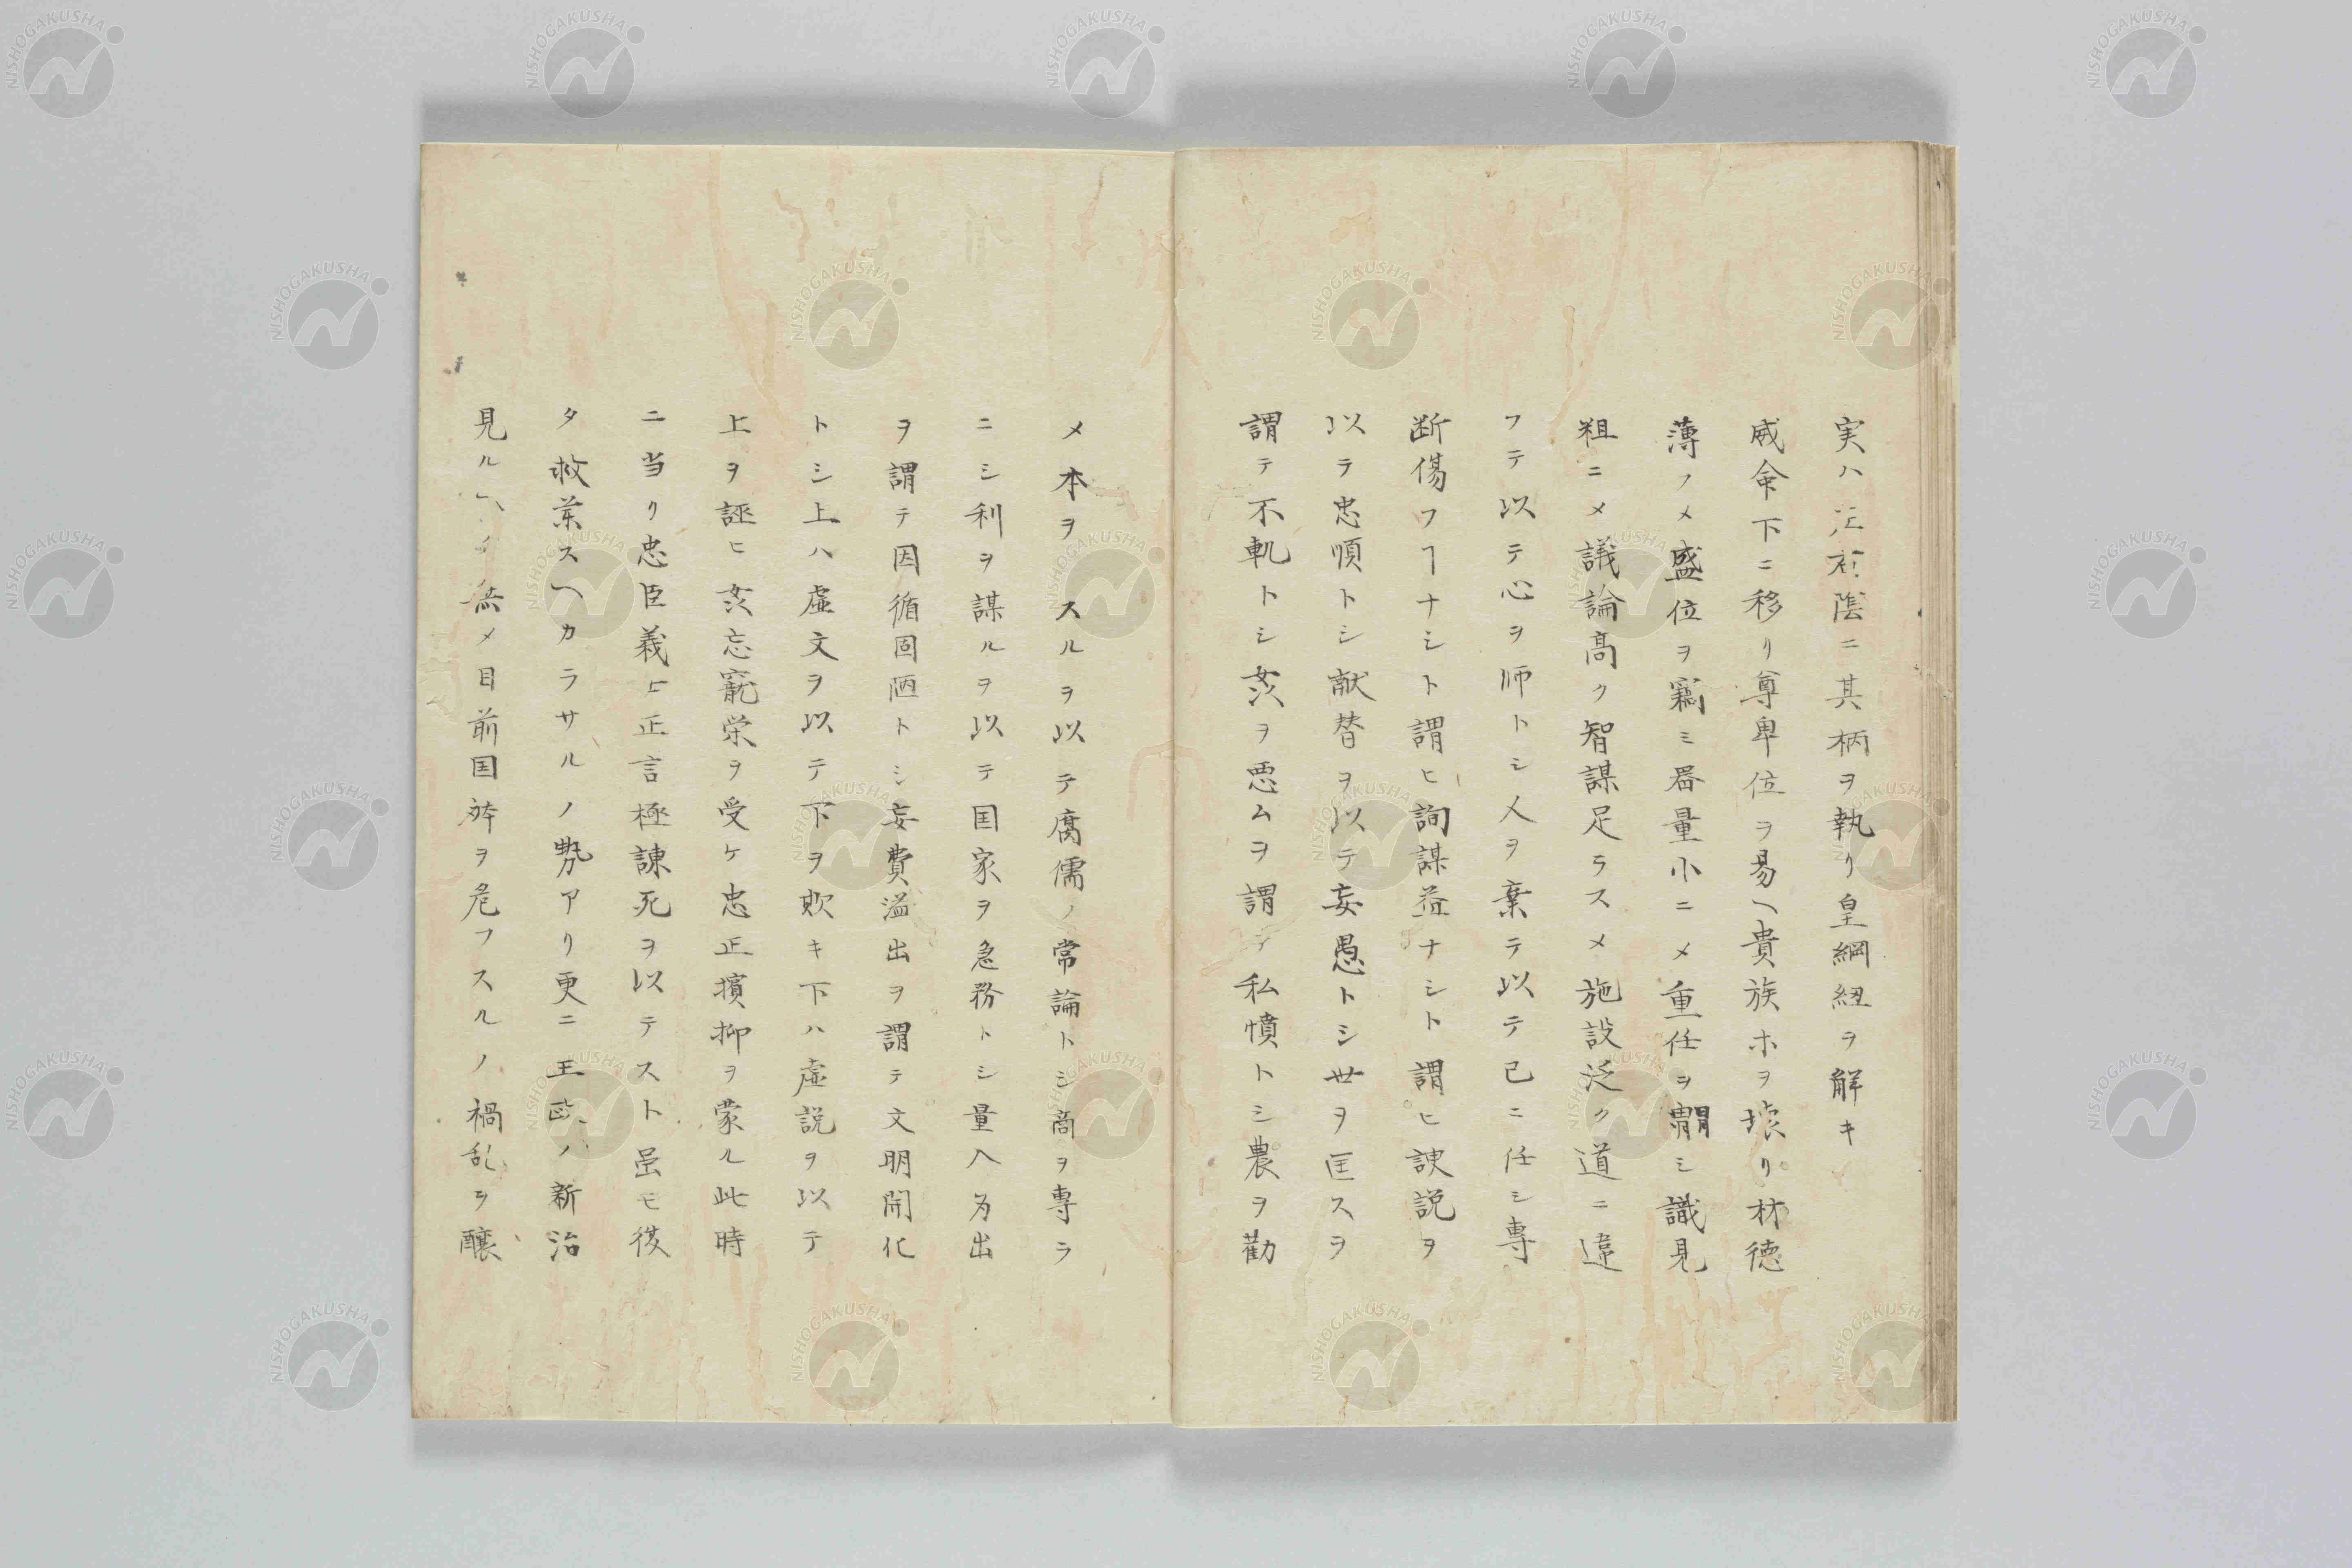 実ハ左右陰ニ其柄ヲ執リ皇綱紐ヲ解キ
威命下ニ移リ尊卑位ヲ易ヘ貴族ホヲ壊リ材徳
薄フメ盛位ヲ竊ミ器量小ニメ重任ヲ シ識見
粗ニメ議論高ク智謀足ラスメ施設泛ク道ニ違
フテ以テ心ヲ師トシ人ヲ棄テ以テ己ニ任シ専
断傷フヿナシト謂ヒ詢謀益ナシト謂ヒ諛説ヲ
以テ忠順トシ献替ヲ以テ妄愚トシ世ヲ匡スヲ
謂テ不軌トシ姦ヲ悪ムヲ謂テ私憤トシ農ヲ勸
メ本ヲスルヲ以テ腐儒ノ常論トシ商ヲ専ラ
ニシ利ヲ謀ルヲ以テ国家ヲ急務トシ量入為出
ヲ謂テ因循固陋トシ妄費溢出ヲ謂テ文明開化
トシ上ハ虚文ヲ以テ下ヲ欺キ下ハ虚説ヲ以テ
上ヲ誣ヒ姦忘寵栄ヲ受ケ忠正擯抑ヲ蒙ル此時
ニ当リ忠臣義士正言極諌死ヲ以テスト虽モ後
タ救薬スヘカラサルノ勢アリ更ニ王政ノ新治
見ルヘキ無メ目前国躰ヲ危フスルノ禍乱ヲ醸
NISHOGAKUSHA